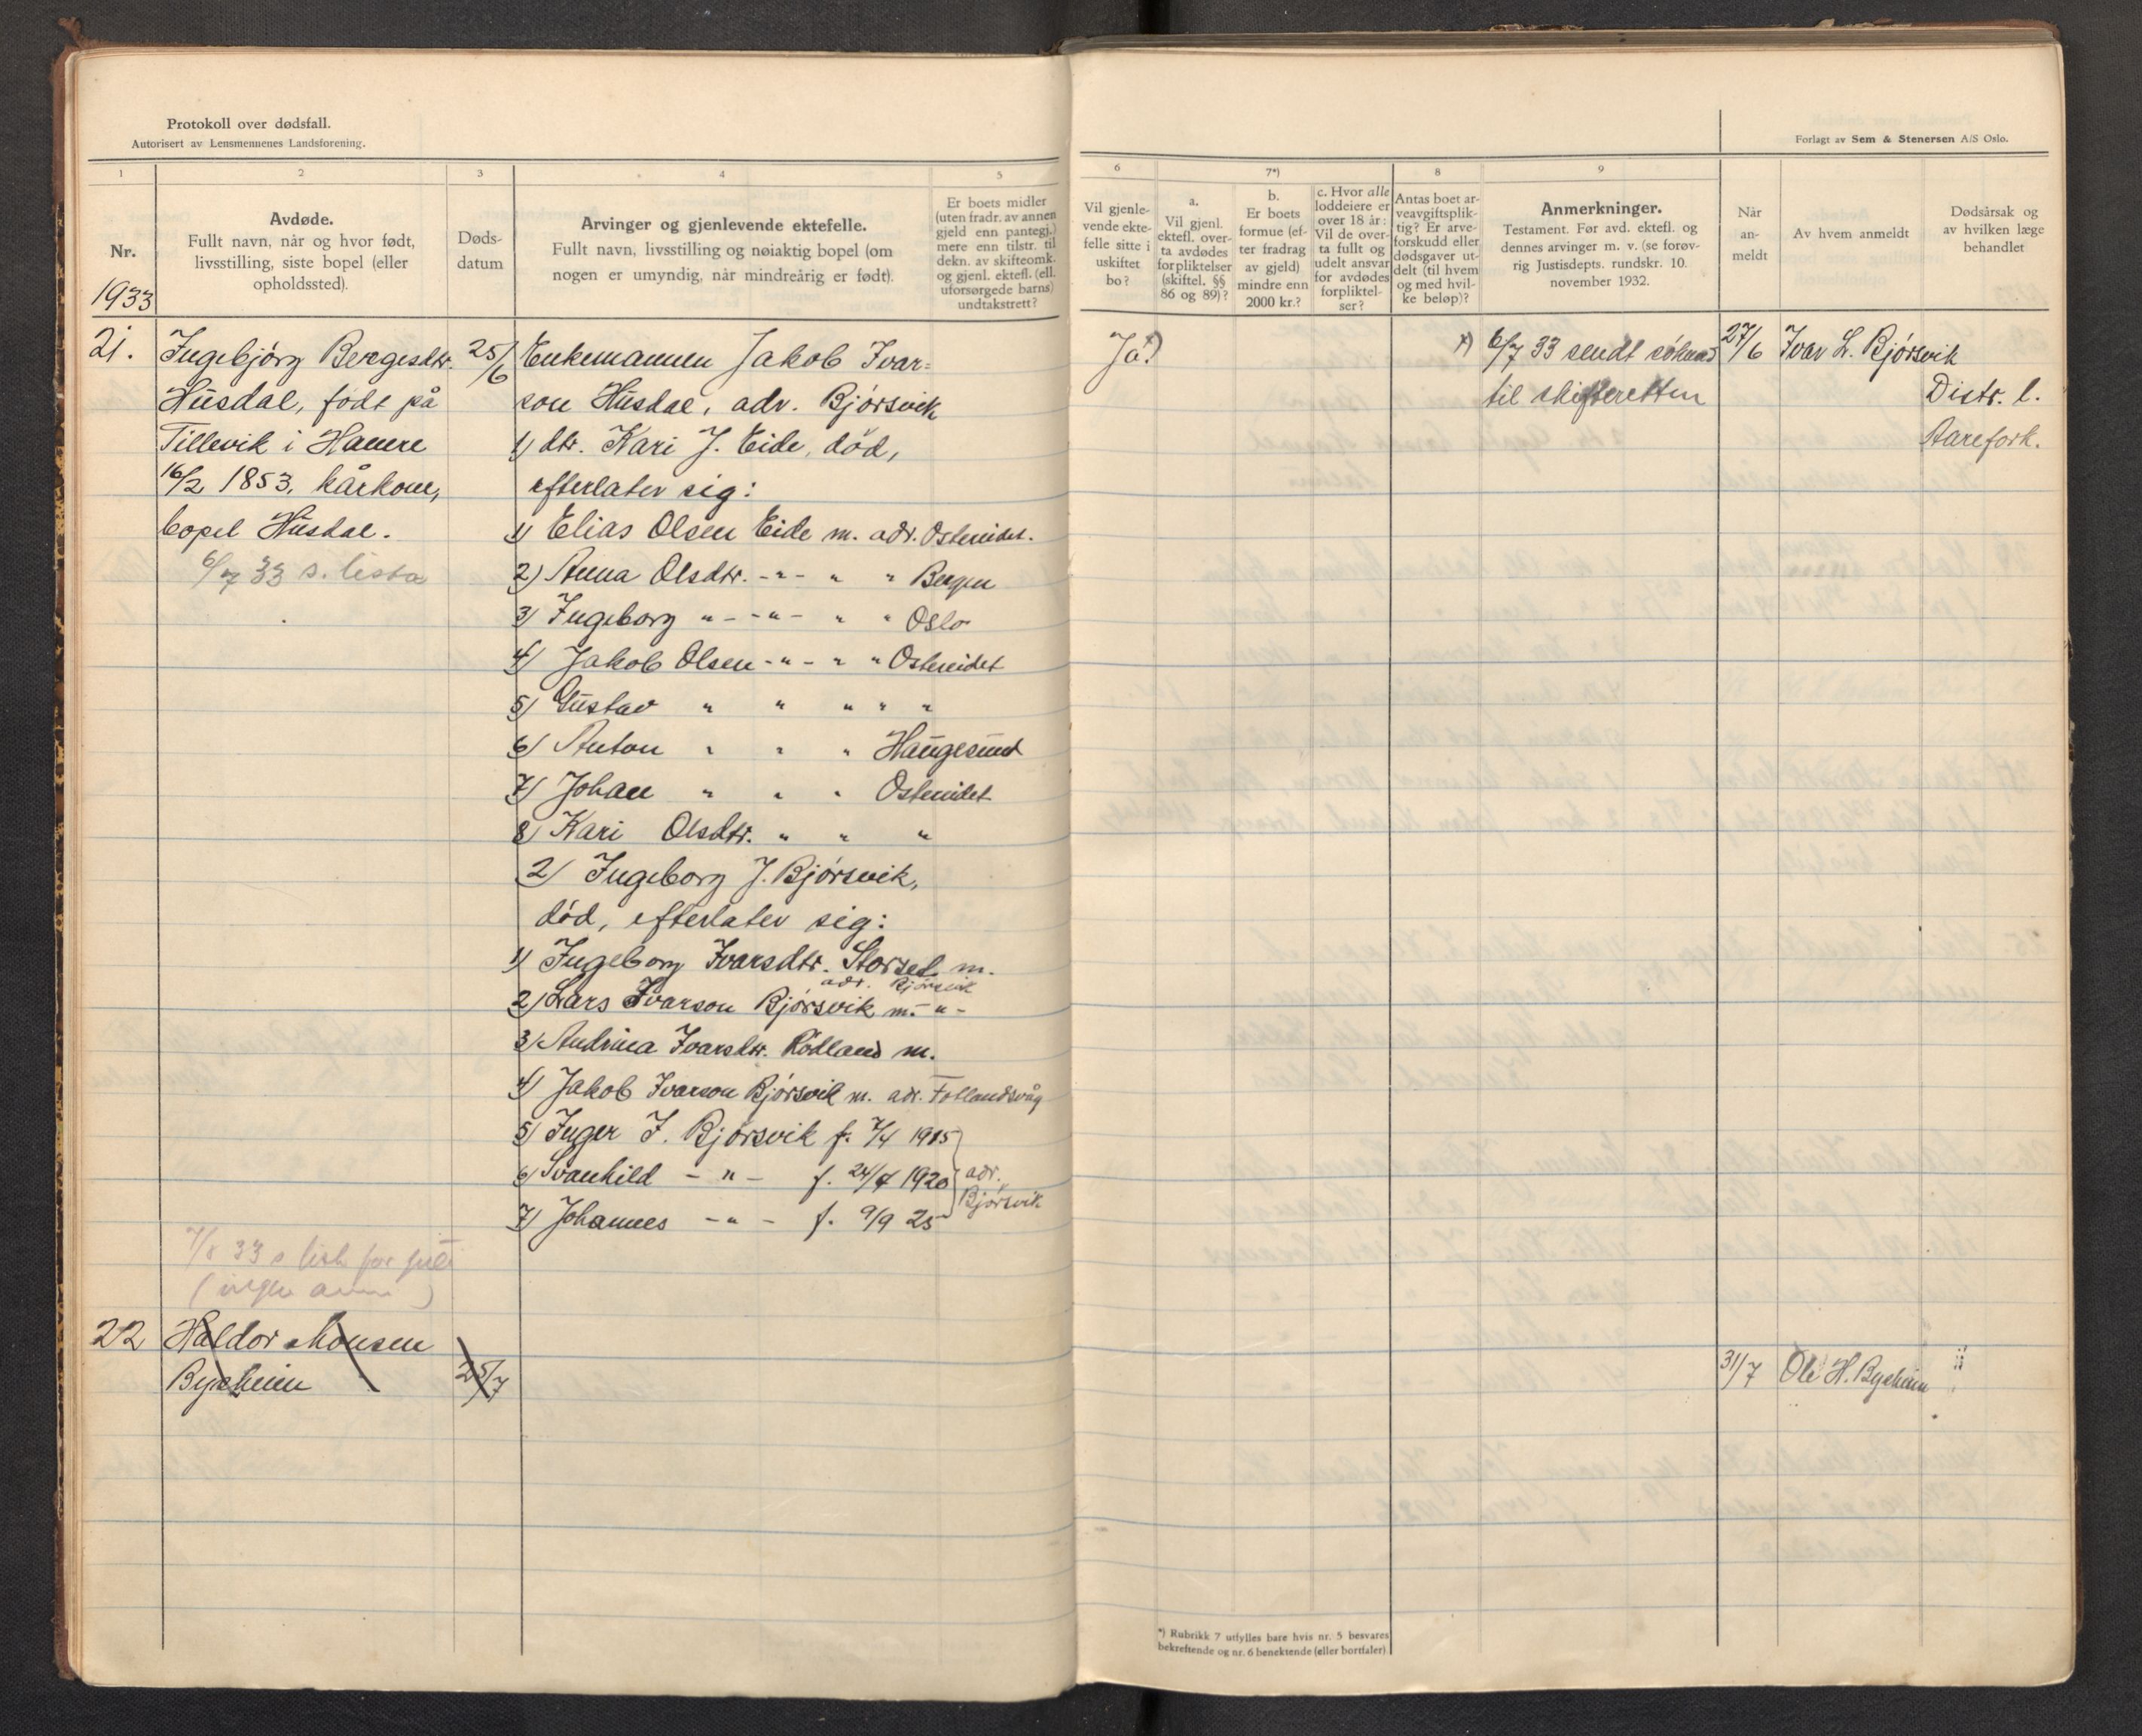 Protokoll over dødsfall.
Autorisert av Lensmennenes Landsforening.
1
Nr.
1933
2
Avdøde.
Fullt navn, når og hvor født,
livsstilling, siste bopel (eller
opholdssted).
3
Døds-
datum
4
Arvinger og gjenlevende ektefelle.
Fullt navn, livsstilling og nøiaktig bopel (om
nogen er umyndig, når mindreårig er født).
5
Er boets midler
(uten fradr. av annen
gjeld enn pantegj.)
mere enn tilstr. til
dekn. av skifteomk.
og gjenl. ektefl. (ell.
uforsørgede barns)
undtakstrett?
21.
Ingebjörg Bergesdtr.
Husdal, födt på
Tillevik i Hamre
16/2 1853, kårkone,
bopel Husdal.
6/7 33 s. lista
25/6
Enkemannen Jakob Ivar-
son Husdal, adr. Bjørsvik
1) dtr. Kari J. Eide, död,
efterlater sig:
1) Elias Olsen Eide m. adr. Ostereidet.
2) Anna Olsdtr. -"- " " Bergen
3) Ingeborg "- -"- " " Oslo
4) Jakob Olsen -"- " " Ostereidet
5) Gustav " " " " "
6) Anton " " " Haugesund
7) Johan " " " Ostereidet
8) Kari Olsdtr. " " "
2) Ingeborg J. Bjørsvik,
död, efterlater sig:
1) Ingeborg Ivarsdtr. Storset m.
adr. Bjørsvik
2) Lars Ivarson Bjørsvik m. -"-
3) Andrina Ivarsdtr. Rödland m.
4) Jakob Ivarson Bjørsvik m. adr. Fotlandsvåg
5) Inger I. Bjørsvik f. 7/4 1915
6) Svanhild -"- f. 24/4 1920
7) Johannes -"- f. 9/9 25
adr.
Bjørsvik
7/8 33 s list for juli
22
Haldor Monsen
Bysheim
25/7
Forlagt av Sem & Stenersen A/S Oslo.
6
Vil gjenle-
vende ekte-
felle sitte i
uskiftet
bo?
7*)
a.
Vil gjenl.
ektefl. over-
ta avdødes
forpliktelser
(skiftel. §§
86 og 89)?
b.
Er boets
formue (ef-
ter fradrag
av gjeld)
mindre enn
2000 kr.?
c. Hvor alle
loddeiere er
over 18 år:
Vil de over-
ta fullt og
udelt ansvar
for avdødes
forpliktel-
ser?
8
Antas boet ar-
veavgiftsplik-
tig? Er arve-
forskudd eller
dødsgaver ut-
delt (til hvem
og med hvil-
ke beløp)?
9
Anmerkninger.
Testament. Før avd. ektefl. og
dennes arvinger m. v. (se forøv-
rig Justisdepts. rundskr. 10.
november 1932.
Når
an-
meldt
Av hvem anmeldt
Dødsårsak og
av hvilken læge
behandlet
Ja x)
x) 6/7 33 sendt söknad
til skifteretten
27/6
Ivar L. Bjørsvik
Distr. l.
Aarefork.
31/7
Ole H. Bysheim
*) Rubrikk 7 utfylles bare hvis nr. 5 besvares
bekreftende og nr. 6 benektende (eller bortfaler)